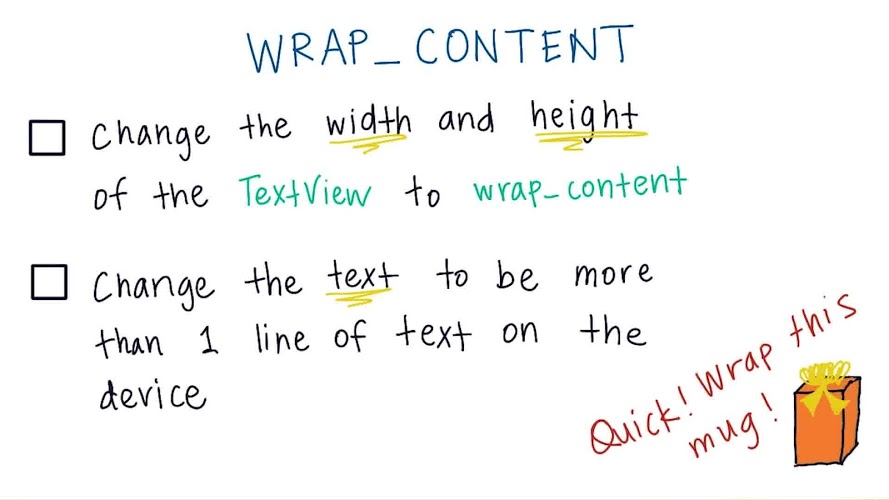 WRAP_CONTENT
Change the width and height
of the TextView to wrap_content
Change the text to be more
than 1 line of text on the
device
Quick! Wrap this
mug!